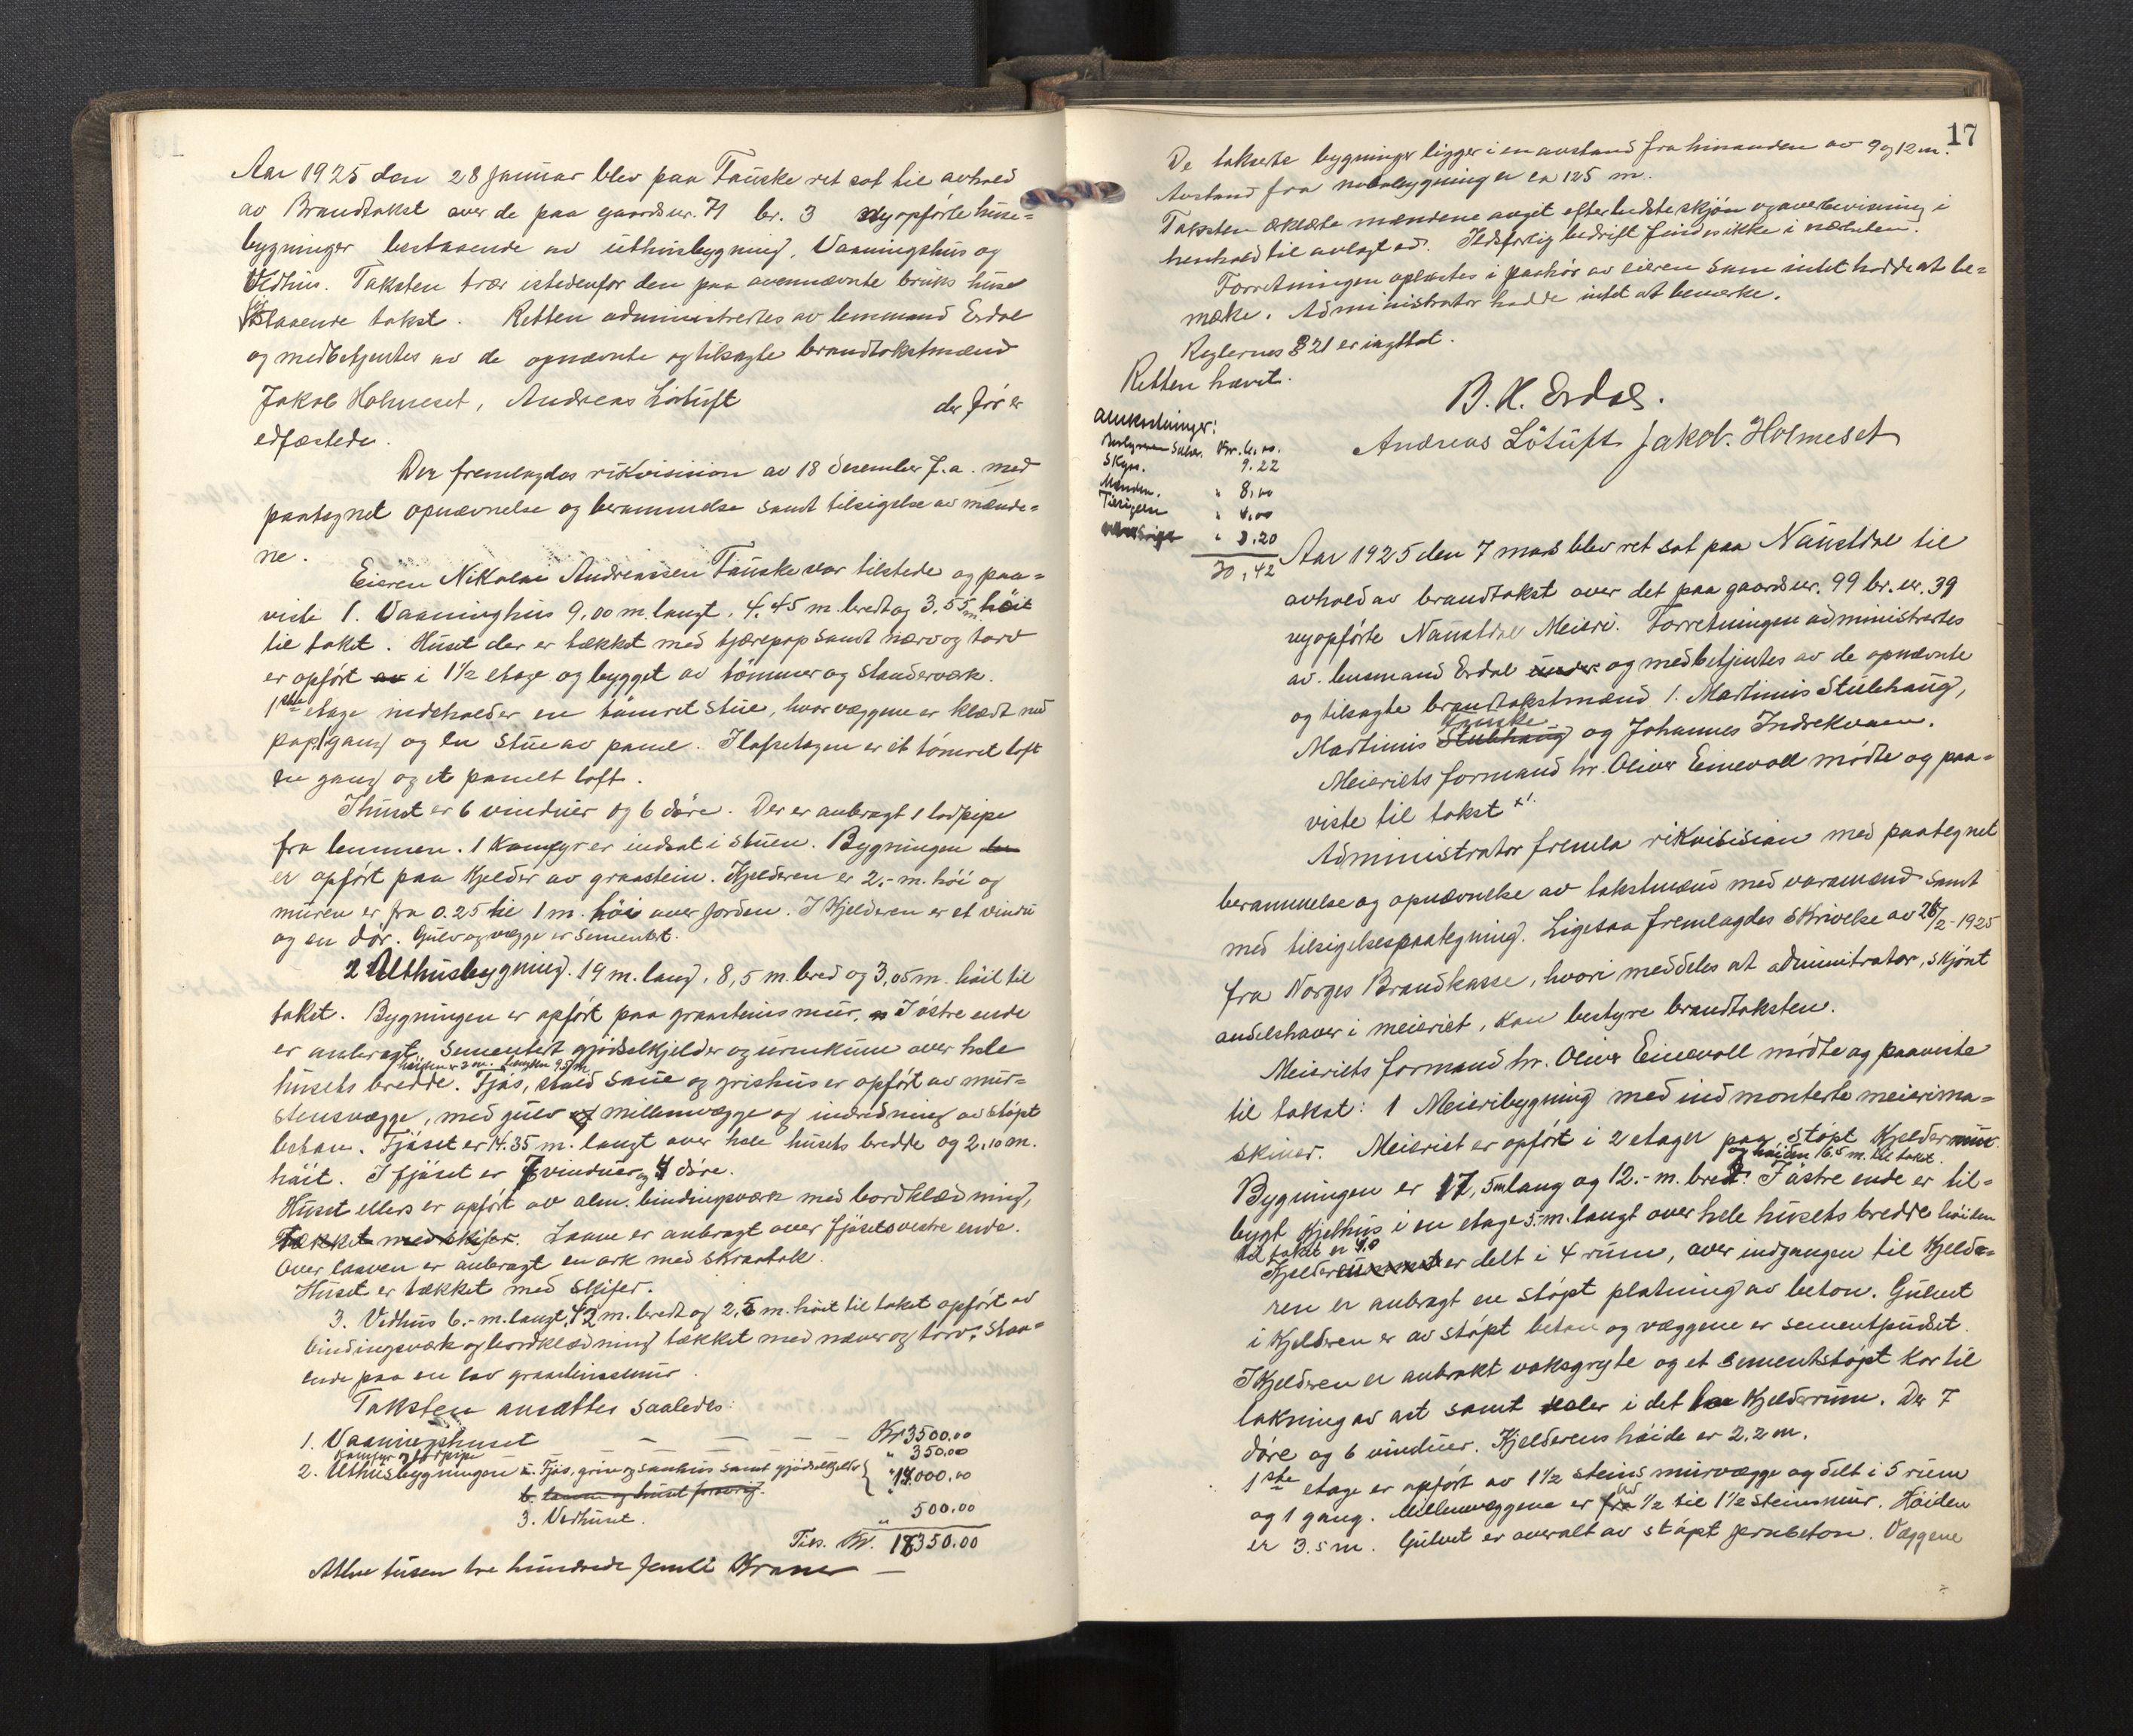 Aar 1925 den 28 januar blev paa Fauske ret sat til avhold
av Brandtakst over de paa gaardsnr. 71 br. 3 nyopførte huse=
bygninger bestaaende av uthusbygning, Vaaningshus og
Vedhus. Taksten træ istedenfor den paa ovennævnte bruks huse
staaende takst. Retten administrertes av lensmand Erdal
og medbetjentes av de opnævnte og tilsagte brandtakstmænd
Jakob Holmeset, Andreas Løtuft der før er
edfæstede.
Der fremlagdes rikvisision av 18 desember f.a. med
paategnet opnævnelse og berammelse samt tilsigelse av mænde=
ne.
Eieren Nikolai Andreassen Fauske var tilstede og paa=
viste 1. Vaaninghus 9,00 m. langt, 4.45 m. bredt og 3,55 m. høit
til taket. Huset der er tækket med tjærepap samt næver og torv
er opført av i 1½ etage og bygget av tømmer og standerværk.
1ste etage indeholder en tømret stue, hvor væggene er klædt med
pap, gang og en stue av panel. I loftsetagen er et tømret loft
en gang og et panelt loft.
I huset er 6 vinduer og 6 døre. Der er anbragt 1 lodpipe
fra lemmen. 1 Komfyr er indsat i stuen. Bygningen
er opført paa Kjelder av graastein. Kjelderen er 2,- m. høi og
muren er fra 0.25 til 1 m. høi over jorden. I Kjelderen er et vindu
og en dør. Gulv og vægge er sementert.
2 Uthusbygning. 19 m. lang, 8,5 m. bred og 3,05 m. høit til
taket. Bygningen er opført paa graasteins mur. I østre ende
er anbragt sementert gjødselkjelder og urinkum over hele
høiden er 2 m. længden 9.5 m.
husets bredde. Fjøs, stald saue og grishus er opført av mur=
stensvægge, med gulv og millemvægge og indredning av støpt
beton. Fjøset er 14.35 m. langt over hele husets bredde og 2,10 m.
høit. I fjøset er 7 vinduer og 4 døre.
Huset ellers er opført av alm. bindingsværk med bordklædning,
Tækket med skifer. Laave er anbragt over fjøsets vestre ende.
Over laaven er anbragt en ark med skraatak.
Huset er tækket med skifer.
3. Vedhus 6,- m. langt, 4,2 m. bredt og 2,5 m. høit til taket opført av
bindingsværk og bordklædning tækket med næver og torv. Staa=
ende paa en lav graasteinsmur.
Taksten ansættes saaledes:
1. Vaaningshuset — — — — Kr 3500.00
Komfyr og lodpipe " 350.00
2. Uthusbygningen a. Fjøs, grise og sauhus samt gjødselkjelder " 14.000,00
b. laave og huset forøvrig.
3. Vedhuset. " 500.00
Tils. Kr. 18350.00
Atten tusen tre hundrede femti Kroner —
17
De takserte bygninger ligger i en avstand fra hinanden av 9 og 12 m.
Avstand fra nabobygning er ca 125 m.
Taksten erklærte mændene avgit efter bedste skjøn og overbevisning i
henhold til avlagt ed. Ildsfarlig bedrift findes ikke i nærheten.
Forretningen oplæstes i paahør av eieren som intet hadde at be=
mærke. Administrator hadde intet at bemerke.
Reglernes § 21 er iagttat.
Retten hævet.
B. K. Erdal.
Andreas Løtuft Jakob Holmeset
Omkostninger:
Bestyreren Salær. Kr. 6,00.
Skyss. 9.22
Mænden. " 8,00
" 4,00
" 3.20
30,42
Aar 1925 den 7 mars blev ret sat paa Naustdal til
avhold av brandtakst over det paa gaardsnr. 99 br. nr. 39
nyopførte Naustdal Meieri. Forretningen administrertes
av lensmand Erdal under og medbetjentes av de opnævnte
og tilsagte brandtakstmænd 1. Martinus Stubhaug,
Fauske
Martinus Stubhaug og Johannes Indrekvam.
Meieriets formand hr. Oliver Einevoll mødte og paa=
viste til takst x!
Administrator fremla rikvisision med paategnet
berammelse og opnævnelse av takstmænd med varamænd samt
med tilsigelsespaategning. Ligesaa fremlagdes skrivelse av 26/2-1925
fra Norges Brandkasse, hvori meddeles at administrator, skjønt
andelshaver i meieriet, kan bestyre brandtaksten.
Meieriets formand hr. Oliver Einevoll mødte og paaviste
til takst: 1 Meieribygning med ind monterte meierima=
skiner. Meieriet er opført i 2 etager paa støpt Kjeldermur
og høiden 6.5 m. til taket.
Bygningen er 17,5 m lang og 12.- m. bred. I østre ende er til=
bygt Kjelhus i en etage 5.- m. langt over hele husets bredde høiden
til taket er 4.0
Kjelderen er delt i 4 rum, over indgangen til Kjelde=
ren er anbragt en støpt platning av beton. Gulvet
i Kjelderen er av støpt beton og væggene er sementpudset.
I Kjelderen er anbrakt vaksgryte og et sementstøpt Kar til
lakning av ost samt i det Kjelderrum. Der 7
døre og 6 vinduer. Kjelderens høide er 2.2 m.
1ste etage er opført av 1½ steins murvægge og delt i 5 rum
og 1 gang. Millemvæggene er av ½ til 1½ steinsmur. Høiden
er 3.5 m. Gulvet er overalt av støpt jernbeton. Væggene